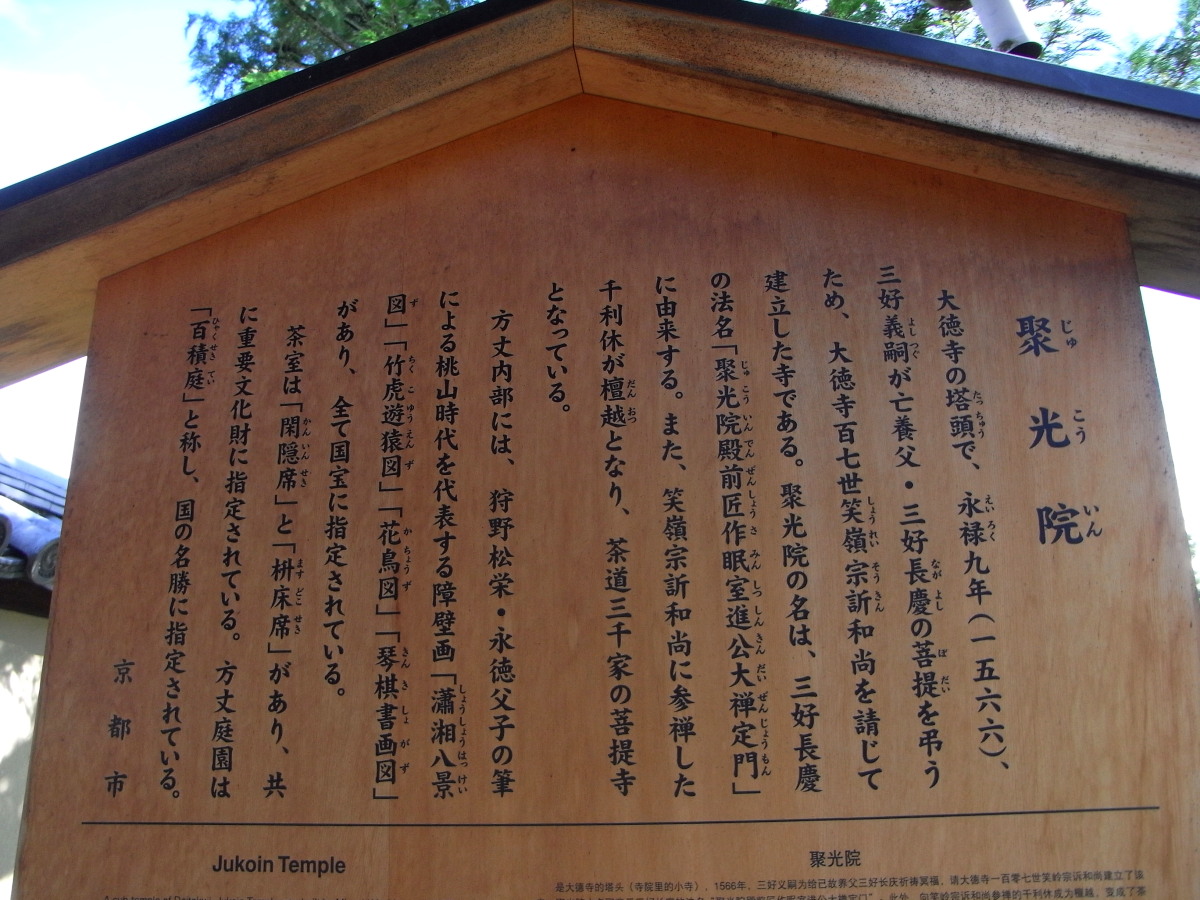 聚光院
大徳寺の塔頭で、永禄九年(一五六六)、
三好義嗣が亡養父・三好長慶の菩提を弔う
ため、大徳寺百七世笑嶺宗訢和尚を請じて
建立した寺である。聚光院の名は、三好長慶
の法名「聚光院殿前匠作眠室進公大禅定門」
に由来する。また、笑嶺宗訢和尚に参禅した
千利休が檀越となり、茶道三千家の菩提寺
となっている。
方丈内部には、狩野松栄・永徳父子の筆
による桃山時代を代表する障壁画「瀟湘八景
図」「竹虎遊猿図」「花鳥図」「琴棋書画図」
があり、全て国宝に指定されている。
茶室は「閑隠席」と「枡床席」があり、共
に重要文化財に指定されている。方丈庭園は
「百積庭」と称し、国の名勝に指定されている。
京都市
Jukoin Temple
聚光院
是大德寺的塔头(寺院里的小寺)。1566年,三好义嗣为给已故养父三好长庆祈祷冥福,请大德寺一百零七世笑岭宗诉和尚建立了该